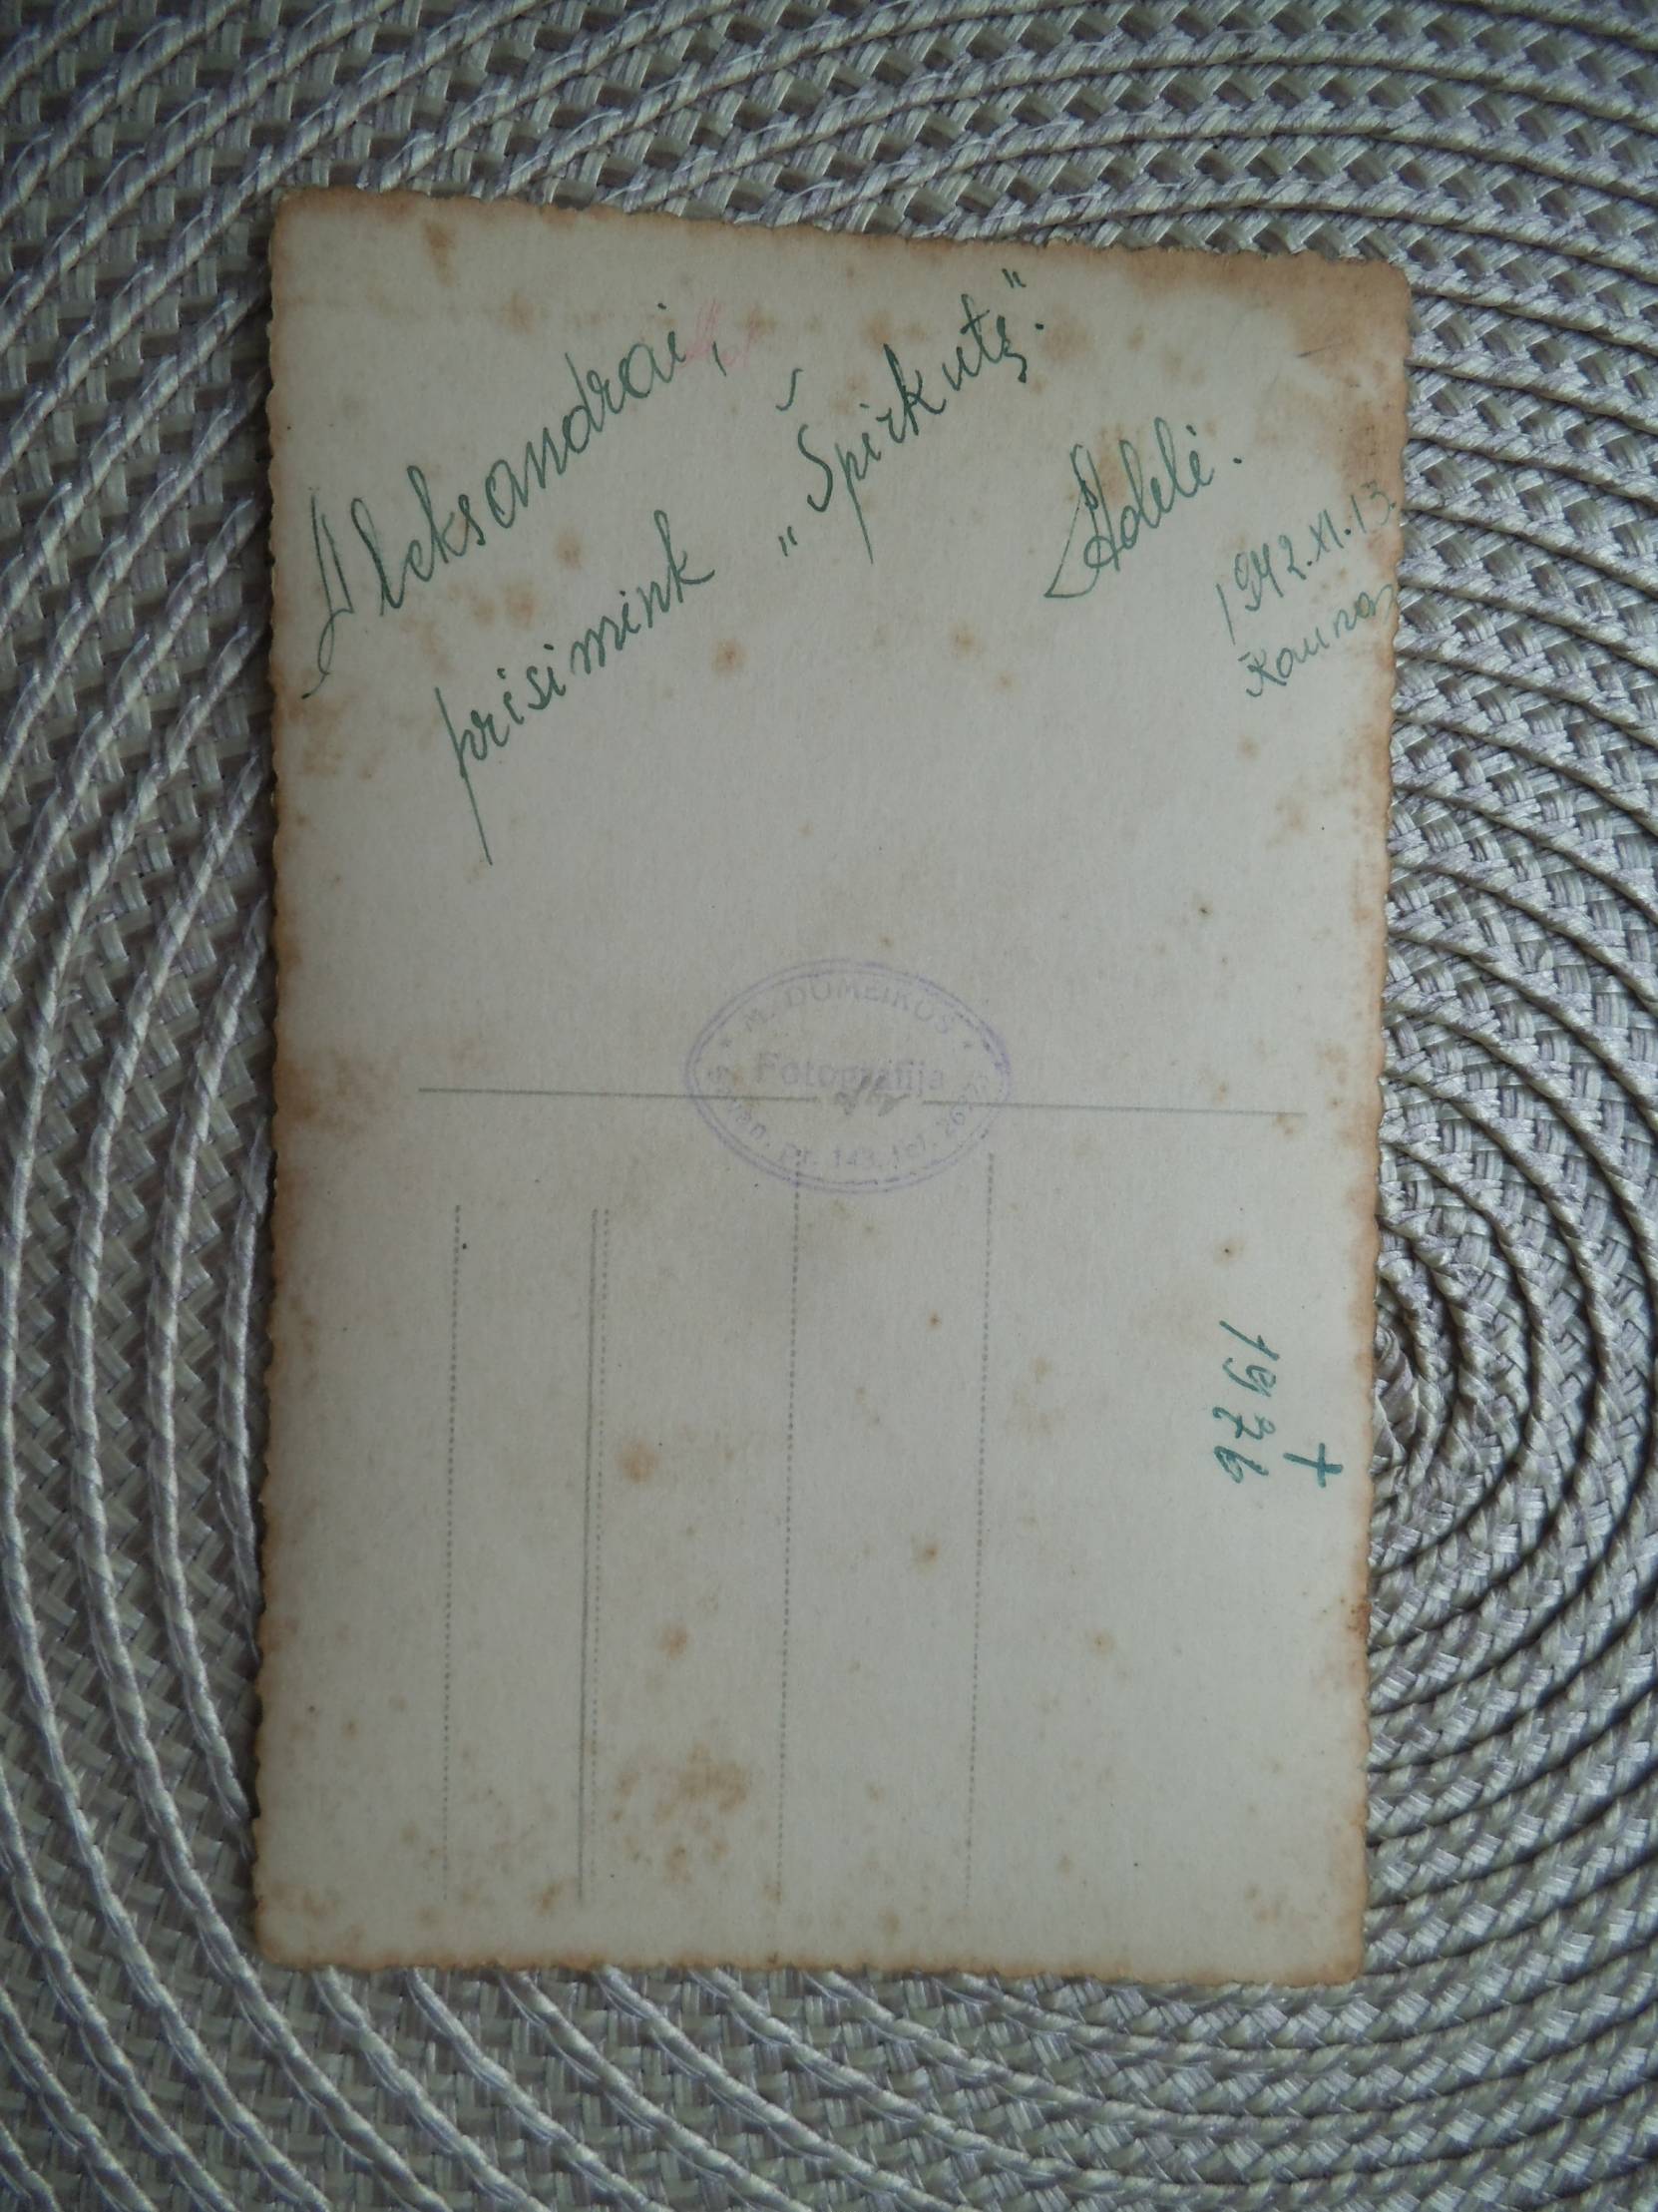 Aleksandrai,
prisimink „Špirkutę".
Adelė.
1942.XI.13.
Kaunas
M. DOMEIKOS
Fotografija
pr. 143, tel.
†
1976